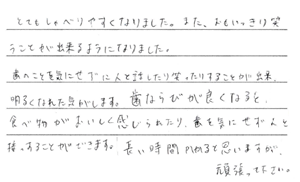 とてもしゃべりやすくなりました。また、おもいっきり笑
うことが出来るようになりました。
歯のことを気にせずに人と話したり笑ったりすることが出来、
明るくなれた気がします。歯ならびが良くなると、
食べ物がおいしく感じられたり、歯を気にせず人と
接することができます。長い時間かかると思いますが、
頑張って下さい。